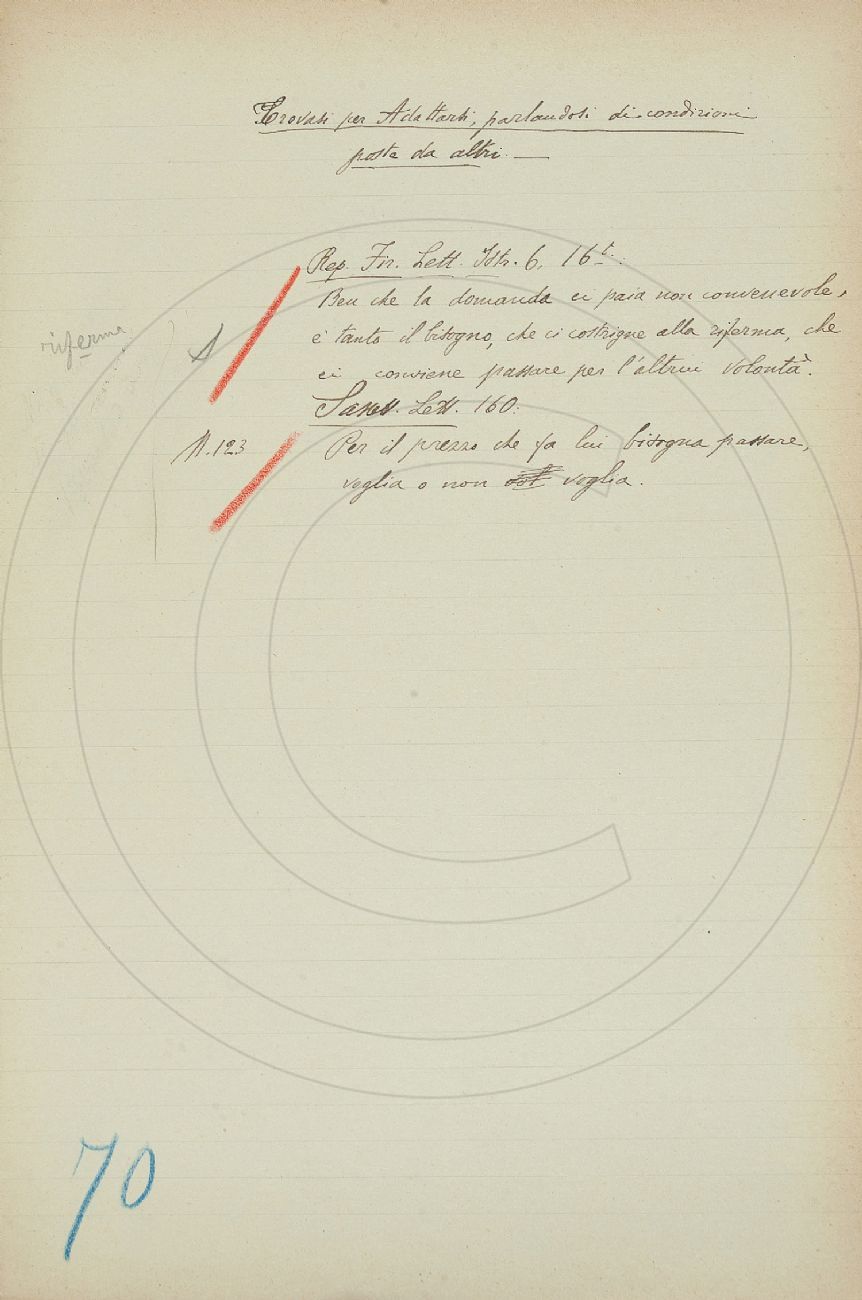 Trovasi per Adattarsi, parlandosi di condizioni
poste da altri. —
Rep. Fir. Lett. Istr. 6. 16t.
Ben che la domanda ci paia non convenevole,
riferma
è tanto il bisogno, che ci costrigne alla riferma, che
ci conviene passare per l'altrui volontà.
Sasset. Lett. 160.
N. 123
Per il prezzo che fa lui bisogna passare,
voglia o non voglia.
70